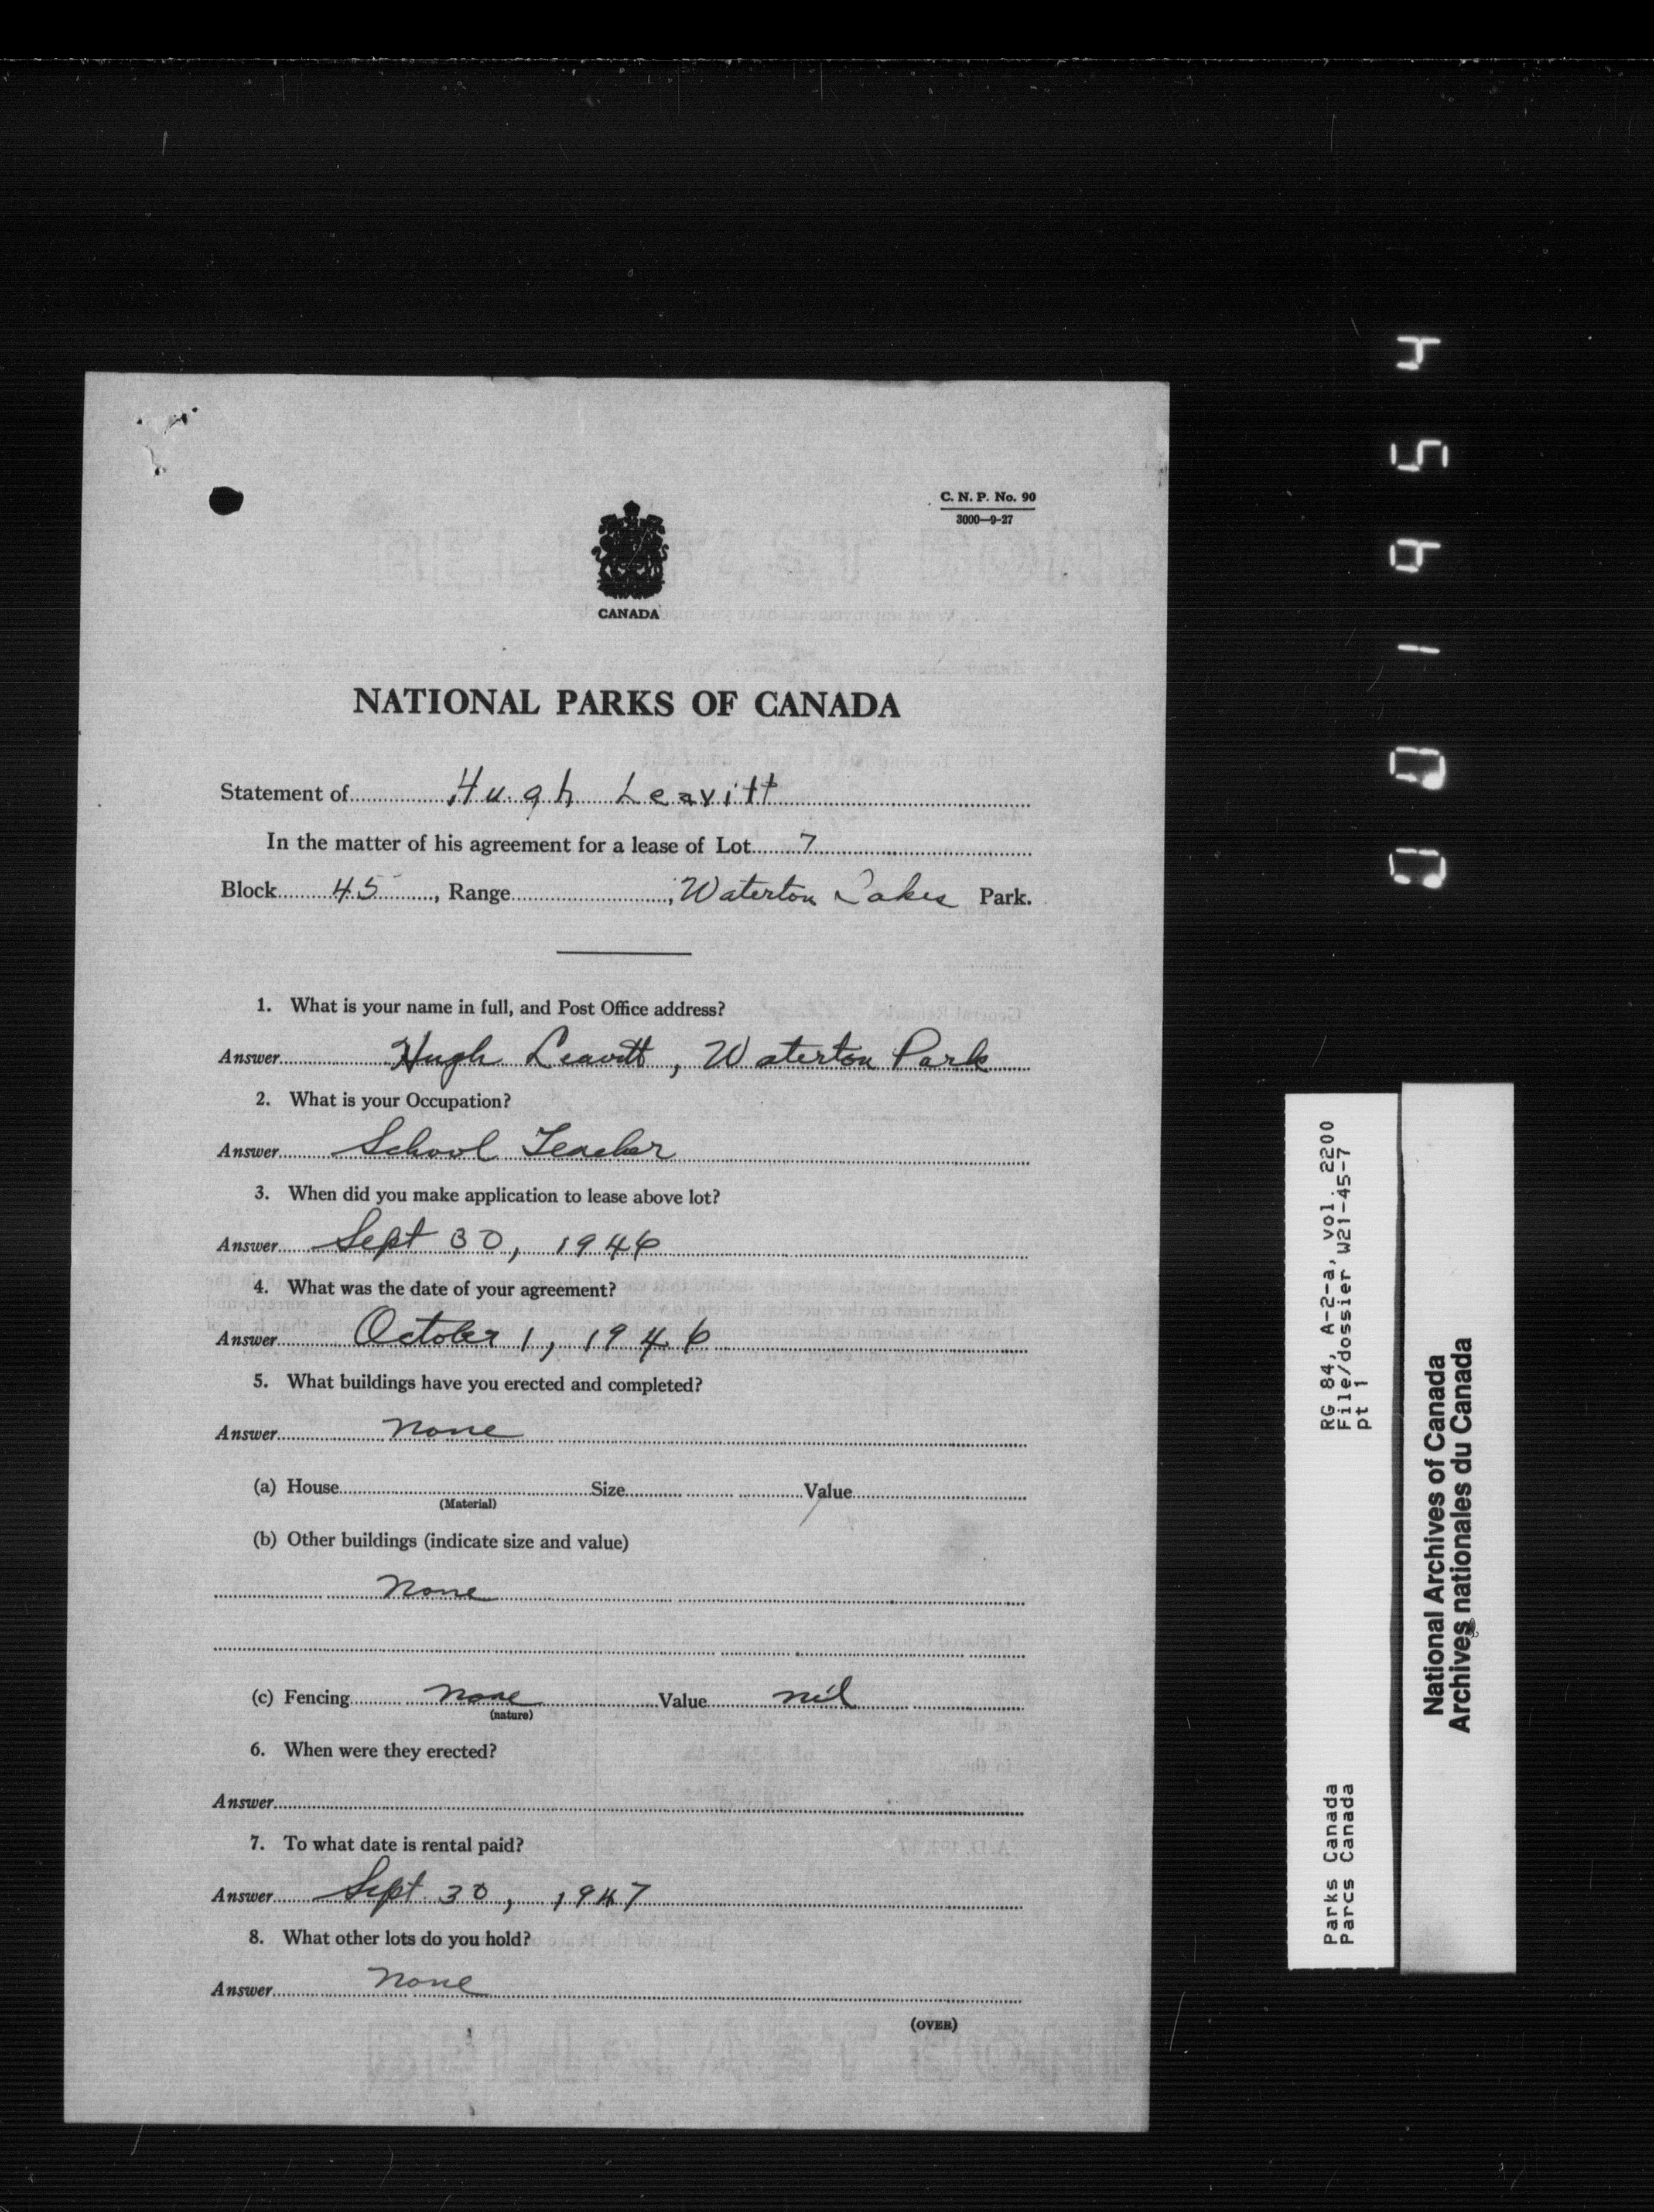 C. N. P. No. 90
3000—9-27
CANADA
NATIONAL PARKS OF CANADA
Statement of Hugh Leavitt
In the matter of his agreement for a lease of Lot 7
Block 45, Range , Waterton Lakes Park.
1. What is your name in full, and Post Office address?
Answer Hugh Leavitt, Waterton Park
2. What is your Occupation?
Answer School Teacher
3. When did you make application to lease above lot?
Answer Sept 30, 1946
4. What was the date of your agreement?
Answer October 1, 1946
5. What buildings have you erected and completed?
Answer None
(a) House Size Value
(Material)
(b) Other buildings (indicate size and value)
None
(c) Fencing None Value nil
(nature)
6. When were they erected?
Answer
7. To what date is rental paid?
Answer Sept 30, 1947
8. What other lots do you hold?
Answer None
(OVER)
001954
RG 84, A-2-a, vol. 2200
File/dossier W21-45-7
pt 1
Parks Canada
Parcs Canada
National Archives of Canada
Archives nationales du Canada